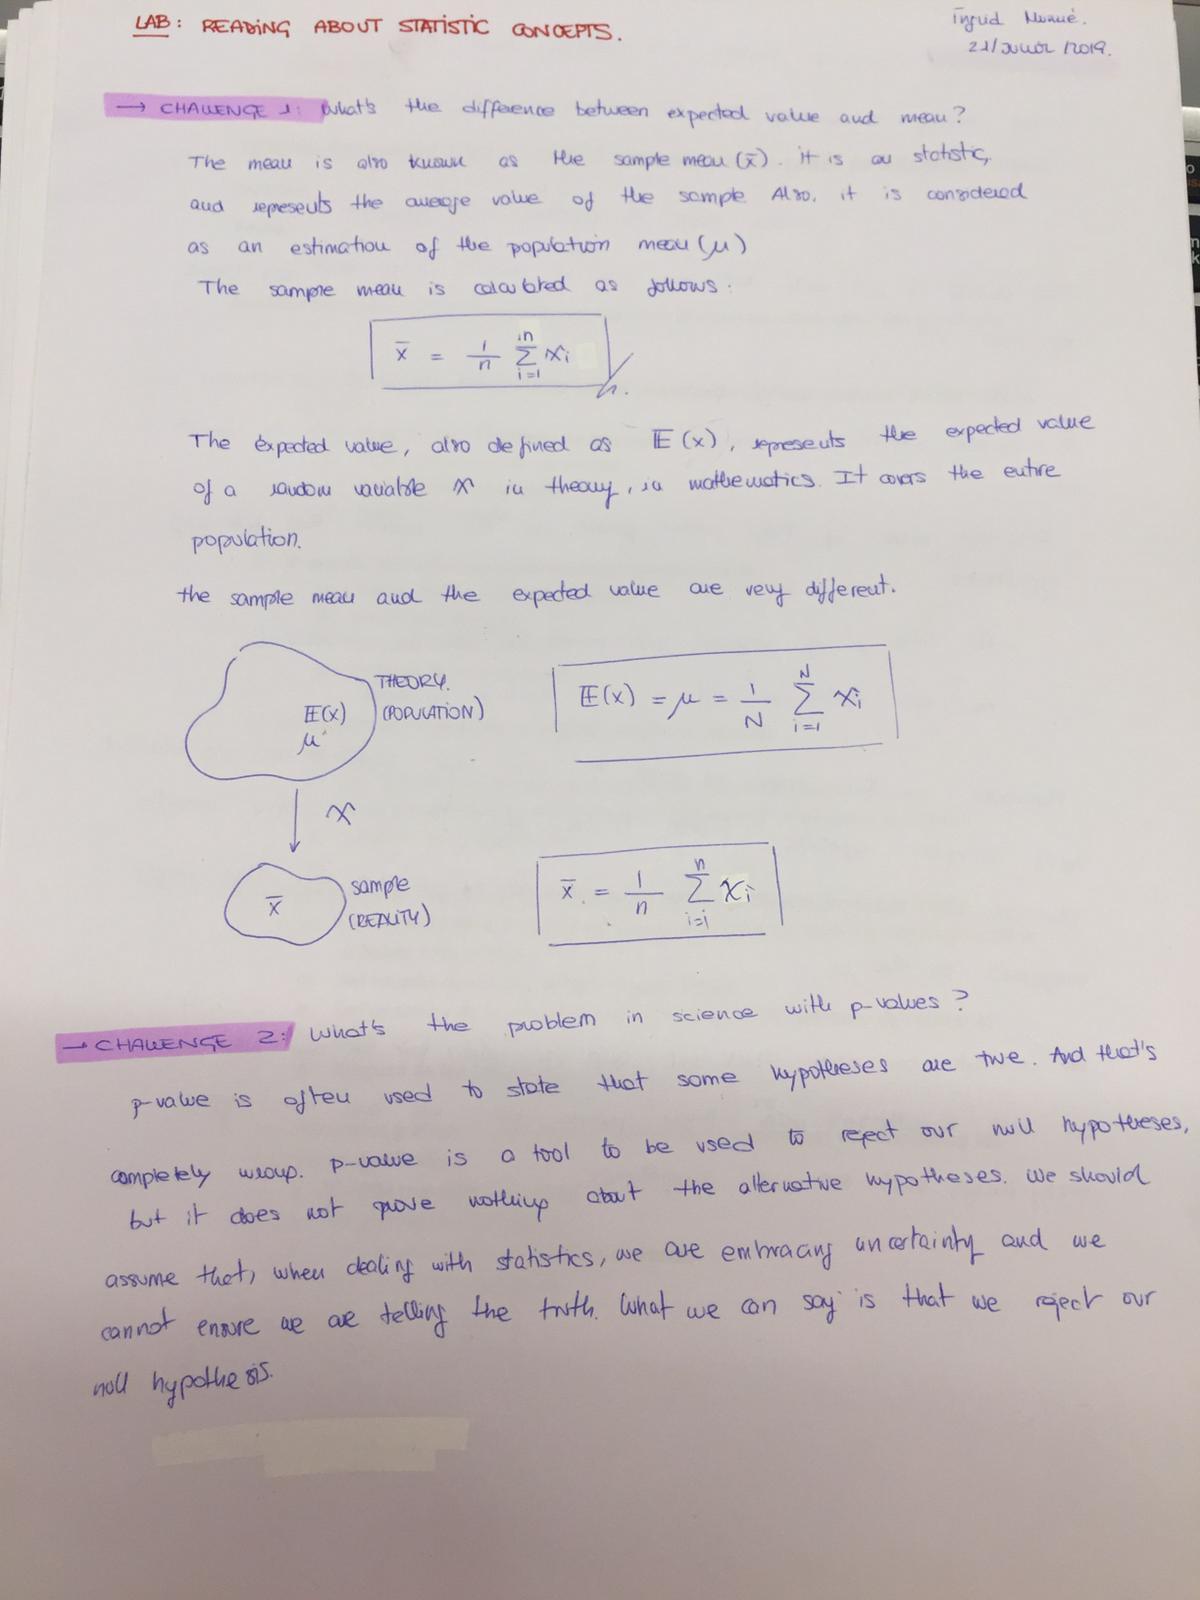 LAB: READING ABOUT STATISTIC CONCEPTS.
Ingrid
21/ /2019.
→ CHALLENGE 1: What's the difference between expected value and mean?
The mean is also known as the sample mean (x̄). it is an statistic,
and represents the average value of the sample. Also, it is considered
as an estimation of the population mean (μ)
The sample mean is calculated as follows:
x̄ = 1/n ∑_{i=1}^{n} xi
The expected value, also defined as E(x), represents the expected value
of a random variable X in theory, in mathematics. It covers the entire
population.
the sample mean and the expected value are very different.
THEORY.
(POPULATION)
E(x)
μ
E(x) = μ = 1/N ∑_{i=1}^{N} xi
X
sample
(REALITY)
x̄
x̄ = 1/n ∑_{i=i}^{n} xi
→ CHALLENGE 2: What's the problem in science with p-values?
p-value is often used to state that some hypotheses are true. And that's
completely wrong. p-value is a tool to be used to reject our null hypotheses,
but it does not prove nothing about the alternative hypotheses. We should
assume that, when dealing with statistics, we are embracing uncertainty and we
cannot ensure we are telling the truth. What we can say is that we reject our
null hypothesis.